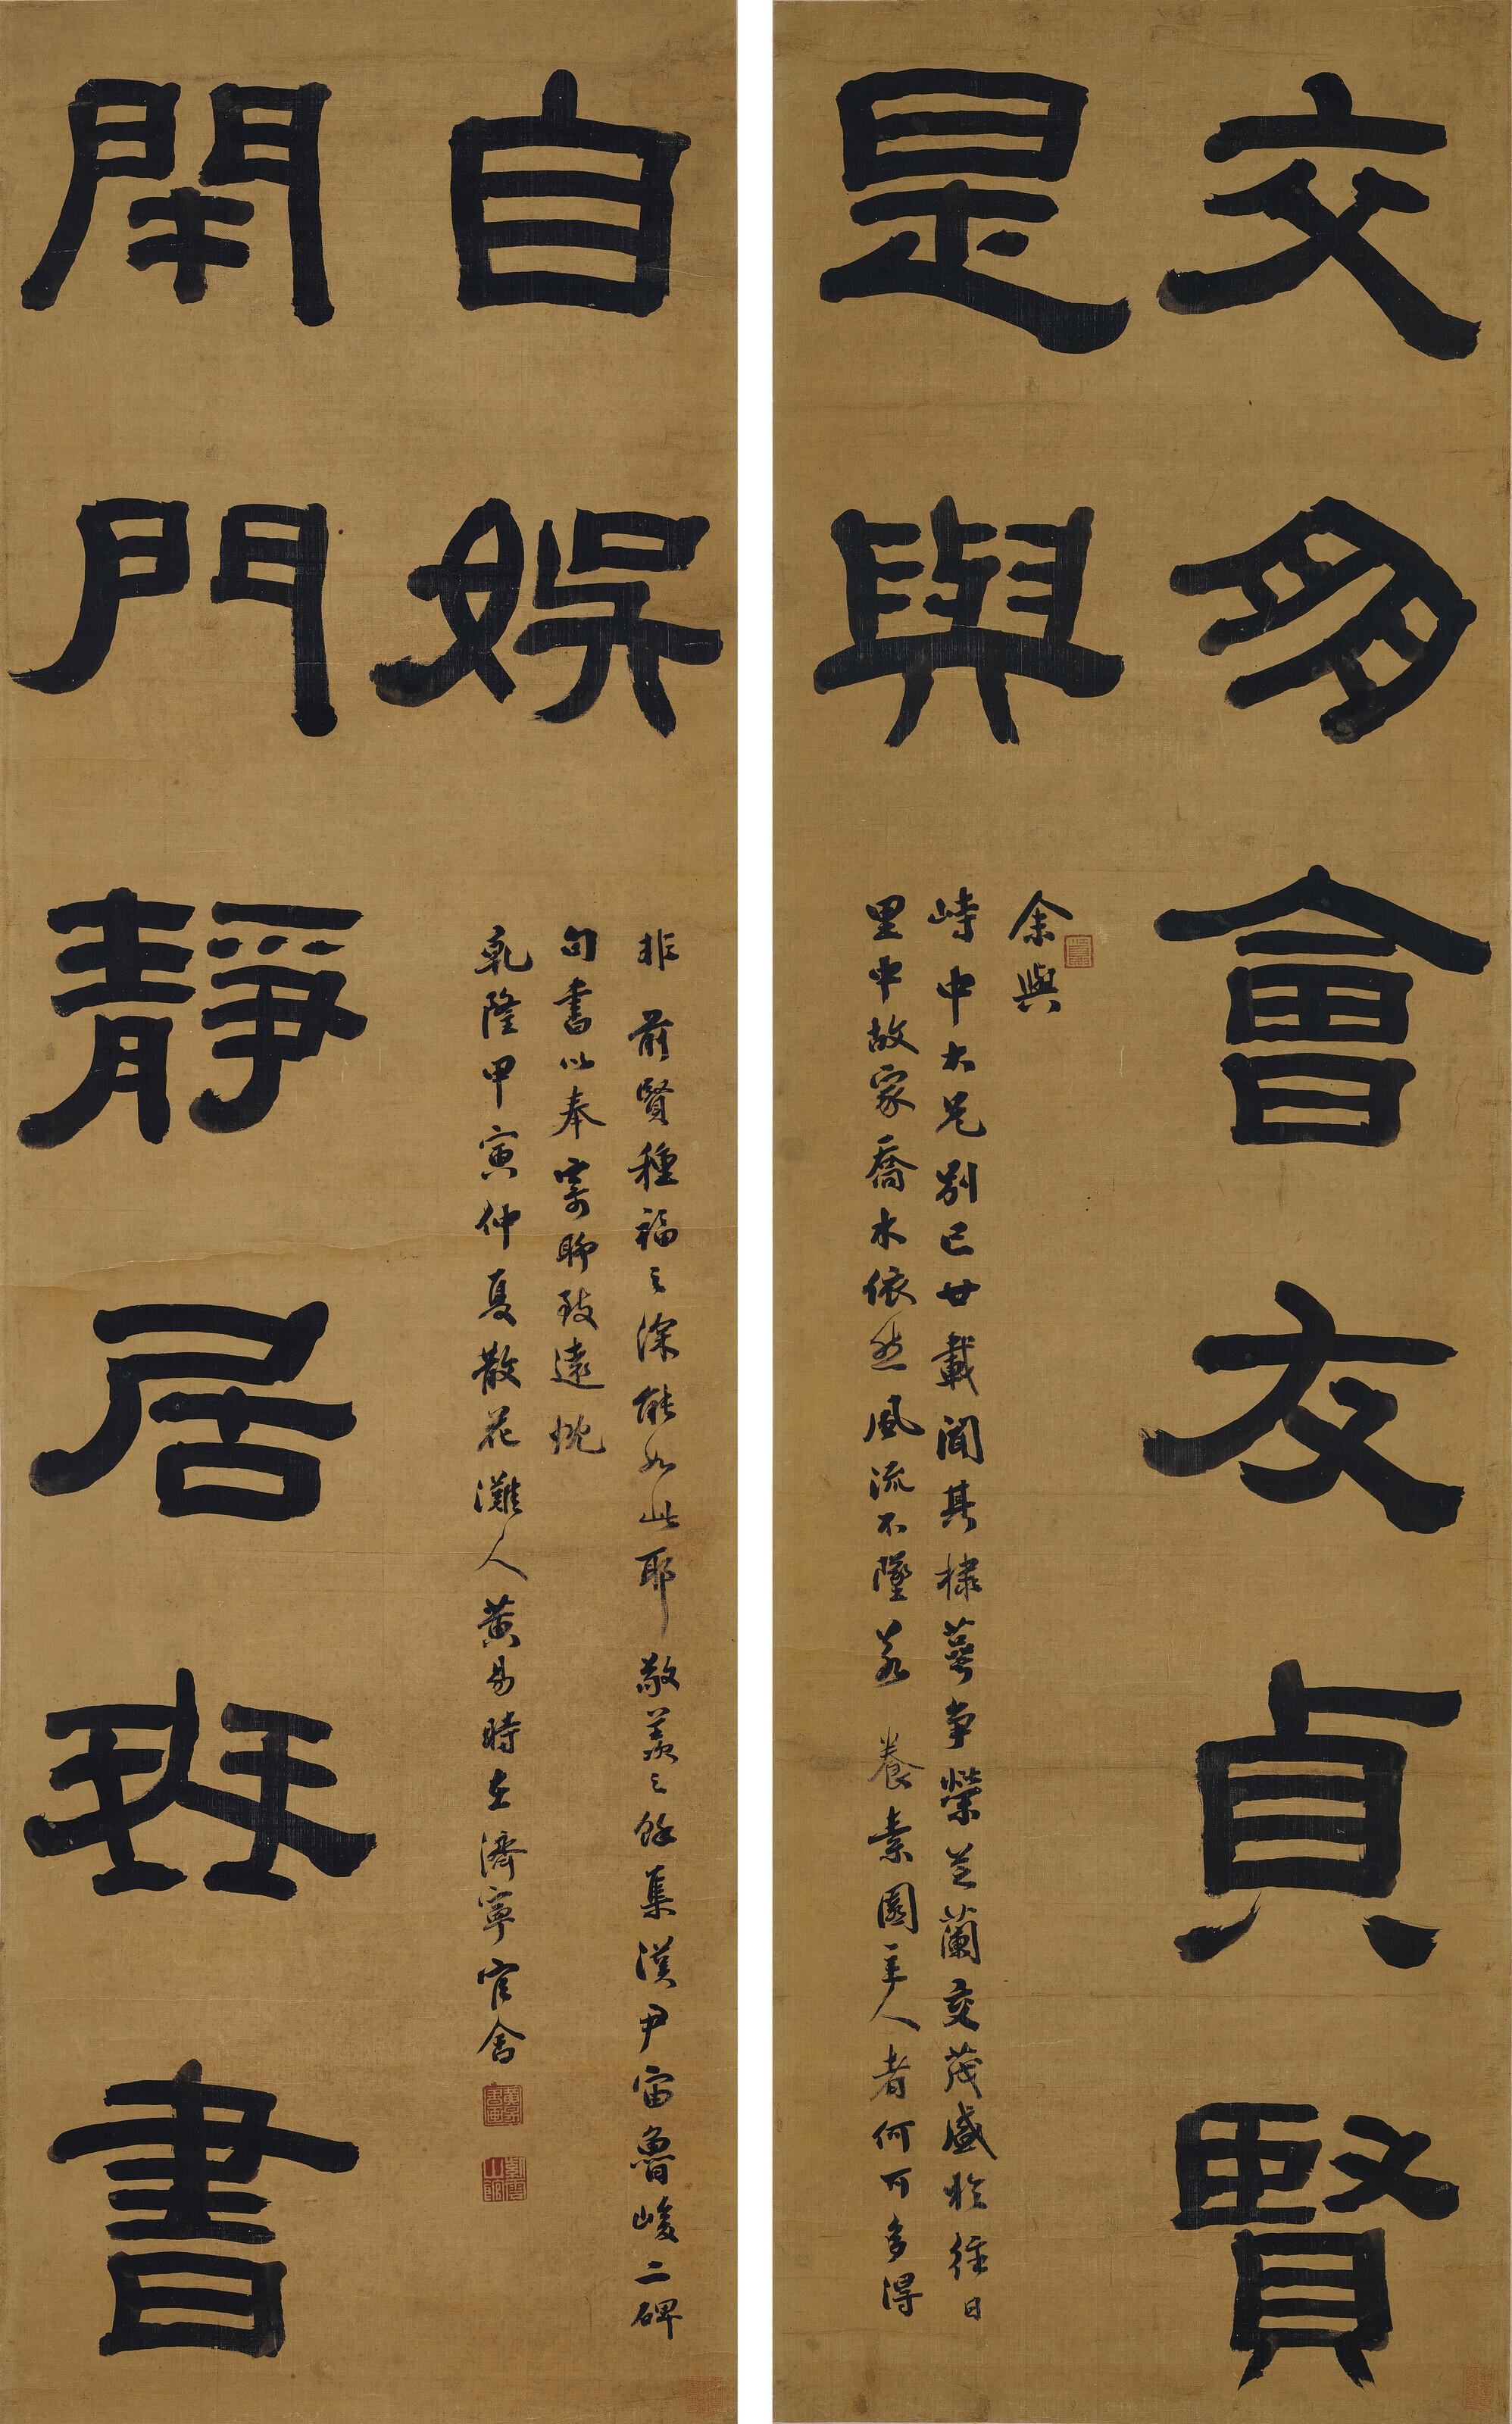 交多會友貞賢
是與
余與
峙中大兄別已廿載聞其棣萼爭榮芝蘭交茂盛於往日
里中故家喬木依然風流不墜若 養素園主人者何可多得
閉門靜居班書
自娛
非前賢種福之深能如此耶敬羨之餘集漢尹宙魯峻二碑
句書以奉寄聊致遠忱
乾隆甲寅仲夏散花灘人黃易時在濟寧官舍